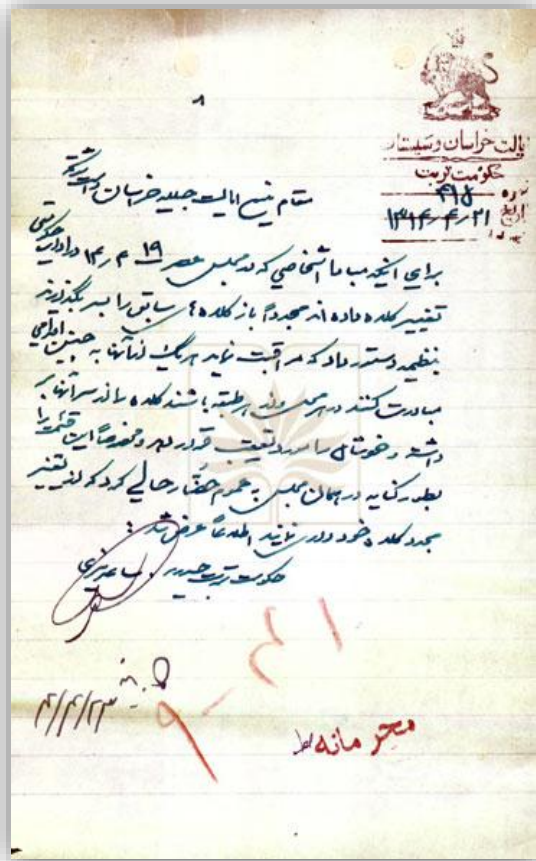 ایالت خراسان و سیستان
حکومت تربت
نمره ۴۱۵
تاریخ ۱۳۱۴/۴/۲۱
مقام منیع ایالت جلیله خراسان دامت شوکته
برای اینکه مبادا اشخاصی که در مجلس عصر ۱۹ /۴/ ۱۴ در ادارات حکومتی
تغییر کلاه داده‌اند مجدداً باز کلاه‌های سابق را بسر بگذارند
بنظمیه دستور داد که مراقبت نماید هر یک از آنها به چنین اقدامی
مبادرت کنند در هر محل و از هر طبقه باشند کلاه را از سر آنها بر
داشته و خودشان را مورد تعقیب قرار دهد و مخصوصاً این قسمت را
بطور کنایه در همان مجلس به عموم حضار حالی کرد که از تغییر
مجدد کلاه خودداری نمایند اطلاعاً عرض شد
حکومت تربت حیدری
محرمانه